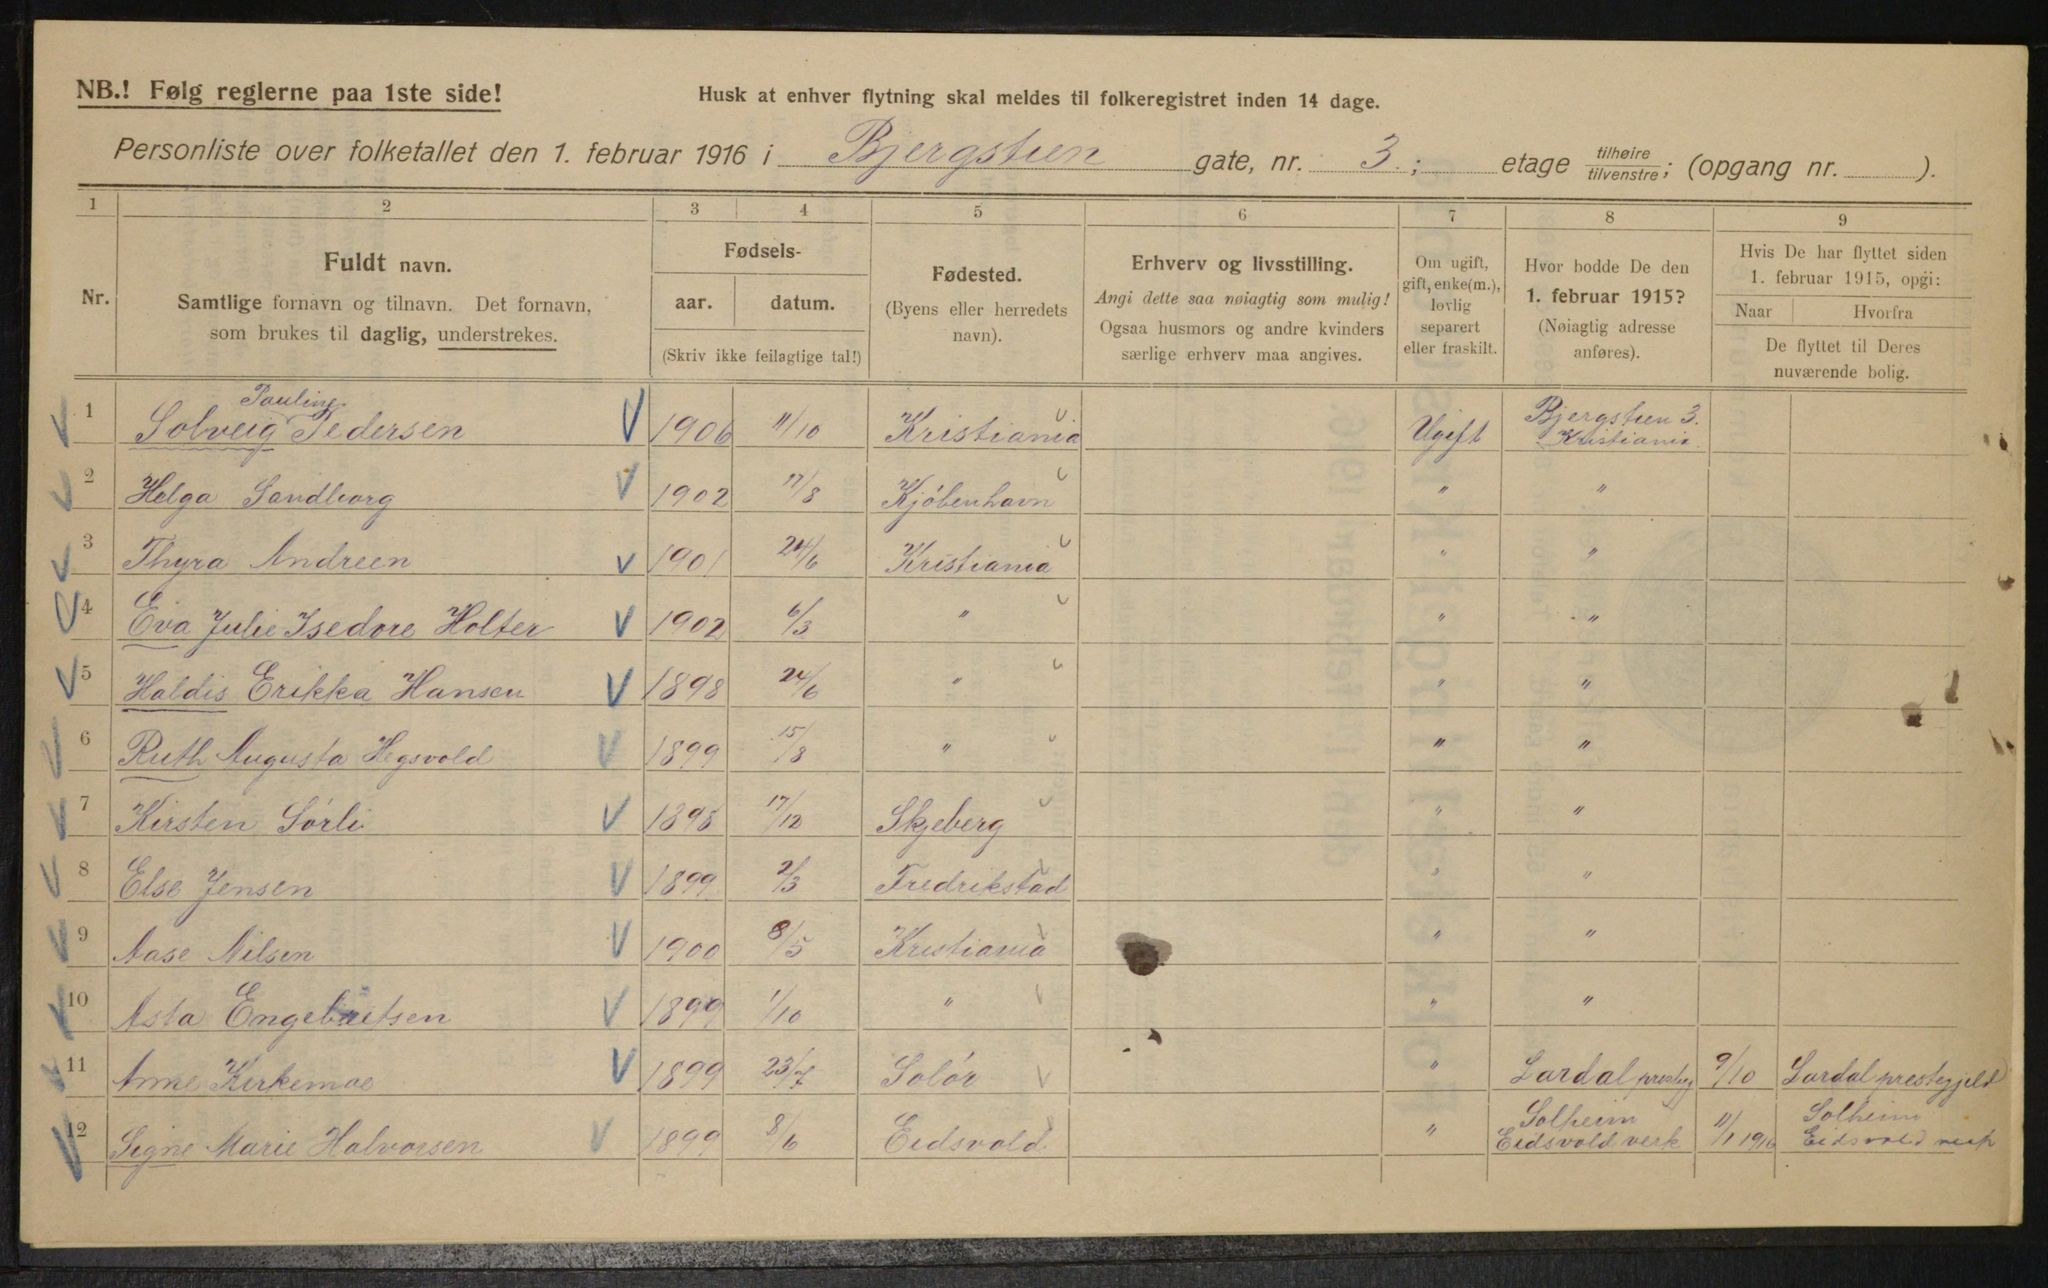 NB.! Følg reglerne paa 1ste side!
Husk at enhver flytning skal meldes til folkeregistret inden 14 dage.
Personliste over folketallet den 1. februar 1916 i Bjergstien gate, nr. 3. ; etage tilhøire tilvenstre ; (opgang nr. ).
1 2 3 4 5 6 7 8 9
Nr.
Fuldt navn.
Samtlige fornavn og tilnavn. Det fornavn,
som brukes til daglig, understrekes.
Fødsels-
aar. datum.
(Skriv ikke feilagtige tal!)
Fødested.
(Byens eller herredets
navn).
Erhverv og livsstilling.
Angi dette saa nøiagtig som mulig!
Ogsaa husmors og andre kvinders
særlige erhverv maa angives.
Om ugift,
gift, enke(m.),
lovlig
separert
eller fraskilt.
Hvor bodde De den
1. februar 1915?
(Nøiagtig adresse
anføres).
Hvis De har flyttet siden
1. februar 1915, opgi:
Naar Hvorfra
De flyttet til Deres
nuværende bolig.
Pauline
1 Solveig Pedersen 1906 11/10 Kristiania Ugift Bjergstien 3. Kristiania
2 Helga Sandborg 1902 17/8 Kjöbenhavn " "
3 Thyra Andreen 1901 24/6 Kristiania " "
4 Eva Julie Isedore Holter 1902 6/3 " " "
5 Haldis Erikka Hansen 1898 24/6 " " "
6 Ruth Augusta Hegsvold 1899 15/8 " " "
7 Kirsten Sörli 1898 17/12 Skjeberg " "
8 Else Jensen 1899 2/3 Fredrikstad " "
9 Aase Nilsen 1900 8/5 Kristiania " "
10 Asta Engebretsen 1899 1/10 " " "
11 Anne Kirkemoe 1899 23/7 Solör " Lardal prestegj 9/10 Lardal prestegjeld
12 Signe Marie Halvorsen 1899 8/6 Eidsvold " Solheim Eidsvold verk 11/1 1916 Solheim Eidsvold verk